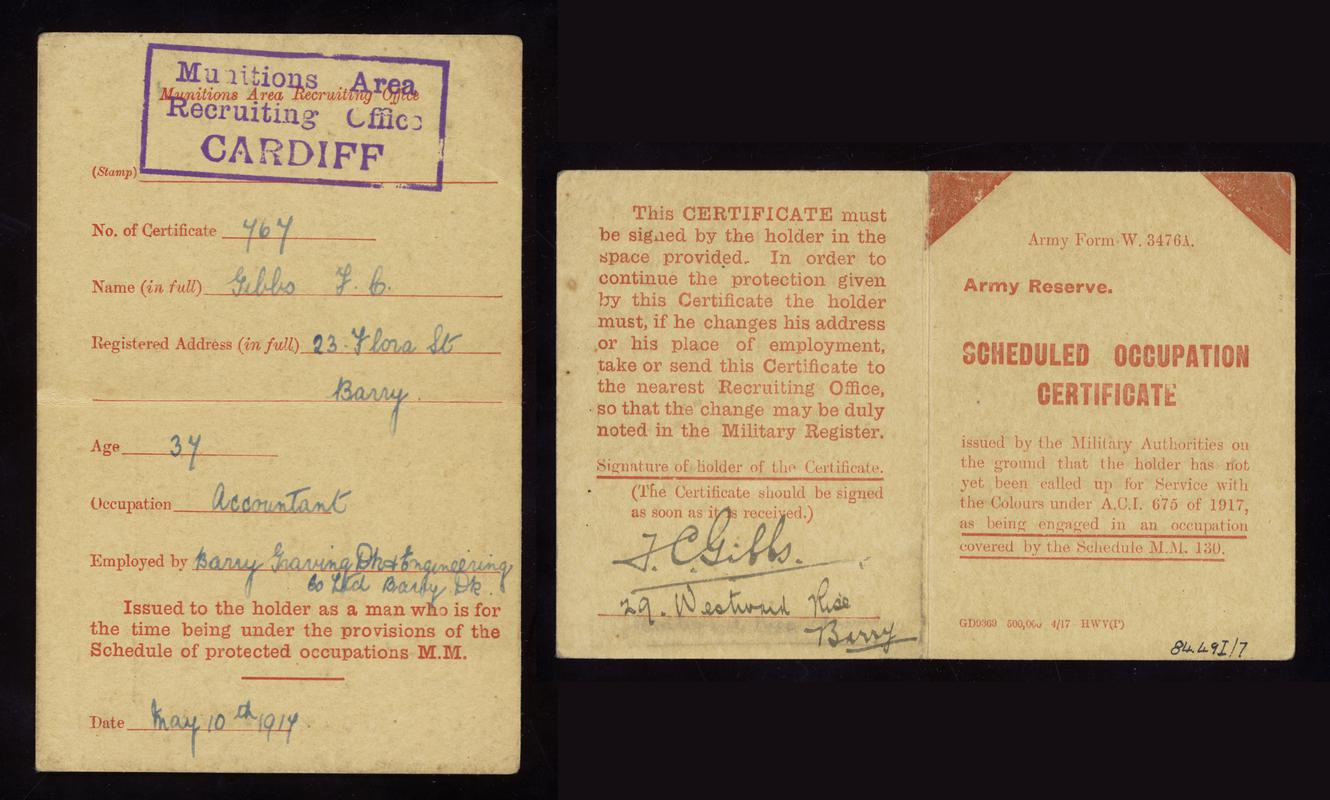 Munitions Area
Munitions Area Recruiting Office
Recruiting Office
CARDIFF
(Stamp)
No. of Certificate 767
Name (in full) Gibbs F. C.
Registered Address (in full) 23. Flora St
Barry.
Age 37
Occupation Accountant
Employed by Barry Graving Dk & Engineering
Co Ltd Barry Dk.
Issued to the holder as a man who is for
the time being under the provisions of the
Schedule of protected occupations M.M.
Date May 10th 1917
This CERTIFICATE must
be signed by the holder in the
space provided. In order to
continue the protection given
by this Certificate the holder
must, if he changes his address
or his place of employment,
take or send this Certificate to
the nearest Recruiting Office,
so that the change may be duly
noted in the Military Register.
Signature of holder of the Certificate.
(The Certificate should be signed
as soon as it is received.)
F. C. Gibbs.
29. Westwood Rise
Barry
Army Form W. 3476A.
Army Reserve.
SCHEDULED OCCUPATION
CERTIFICATE
issued by the Military Authorities on
the ground that the holder has not
yet been called up for Service with
the Colours under A.C.I. 675 of 1917,
as being engaged in an occupation
covered by the Schedule M.M. 130.
GD9363 500,000 4/17 HWV(P)
84.49I/7